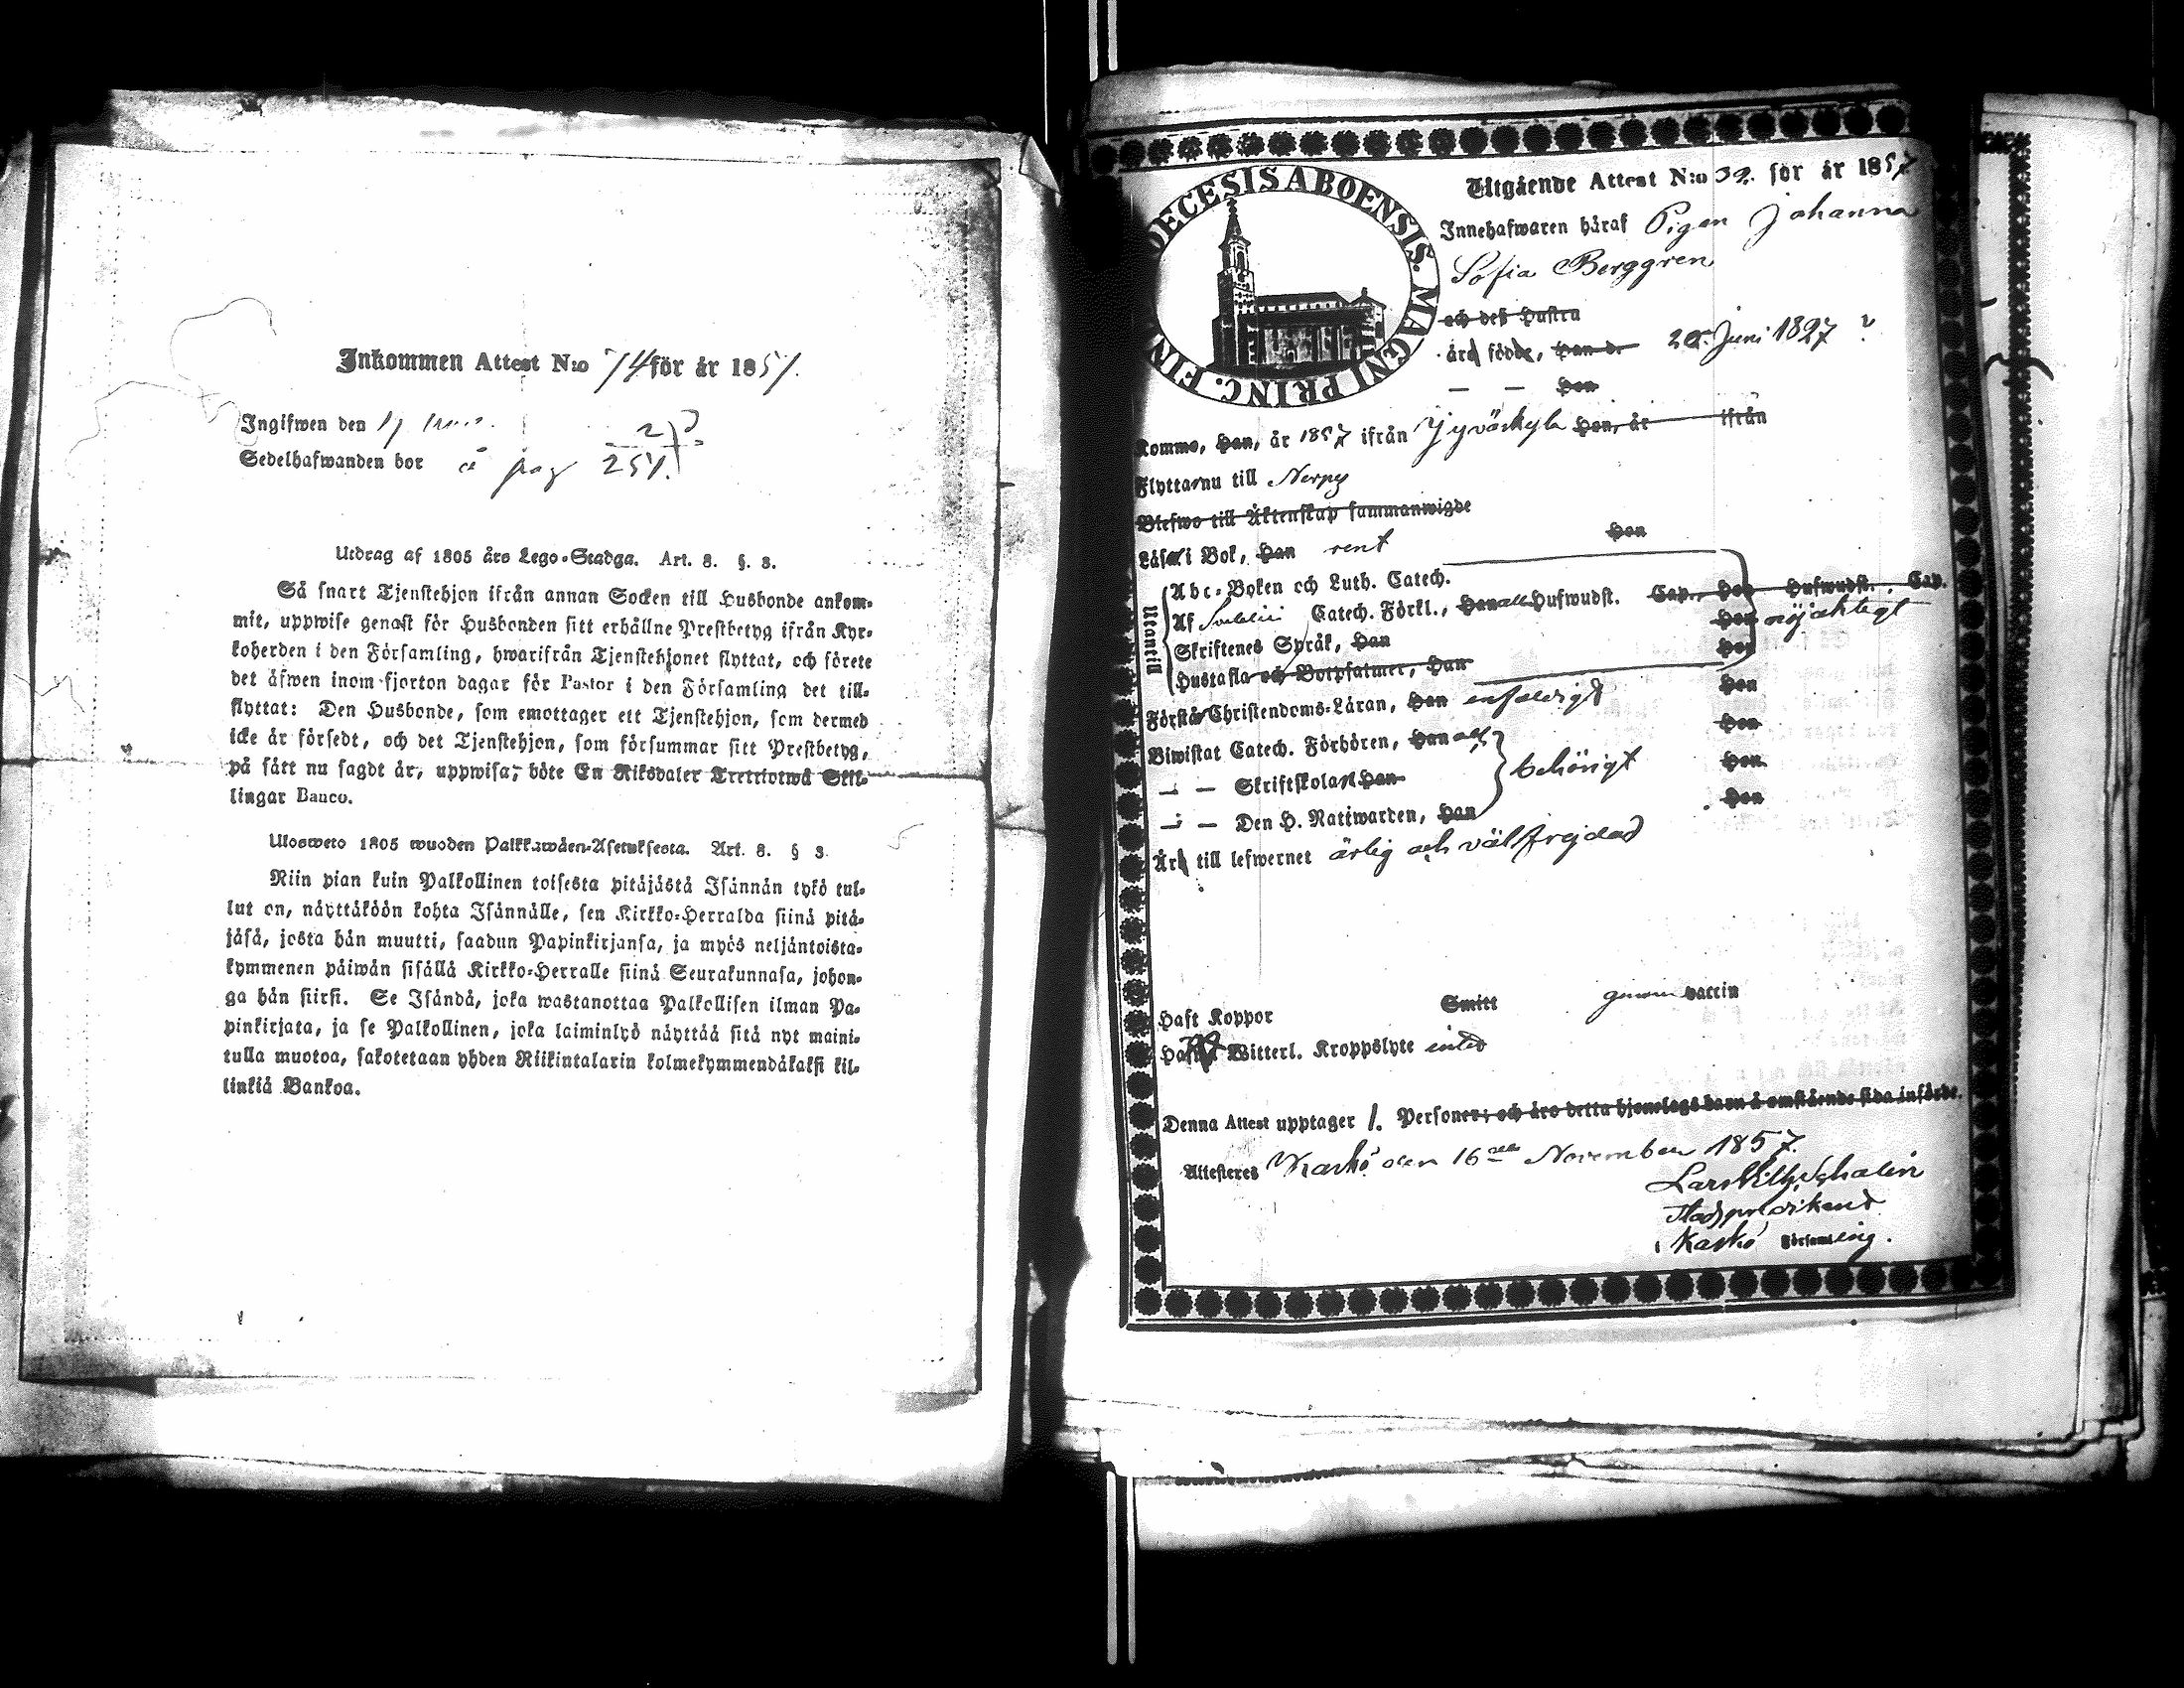 Inkommen Attest N:o 74 för år 1857.
Ingifwen den 17
Sedelhafwanden bor å pag 257.
Utdrag af 1805 års Lego-Stadga. Art. 8. §. 3.
Så snart Tjenstehjon ifrån annan Socken till Husbonde ankom-
mit, uppwise genast för Husbonden sitt erhållne Prestbetyg ifrån Kyr-
koherden i den Församling, hwarifrån Tjenstehjonet flyttat, och förete
det äfwen inom fjorton dagar för Pastor i den Församling det till-
flyttat: Den Husbonde, som emottager ett Tjenstehjon, som dermed
icke är försedt, och det Tjenstehjon, som försummar sitt Prestbetyg,
på sätt nu sagdt är, uppwisa, böte En Riksdaler Trettiotwå Skil-
lingar Banco.
Ulosweto 1805 wuoden Palkkawäen-Asetuksesta. Art. 8. § 3.
Niin pian kuin Palkollinen toisesta pitäjästä Isännän tykö tul-
lut on, näyttäköön kohta Isännälle, sen Kirkko-Herralda siinä pitä-
jäsä, josta hän muutti, saadun Papinkirjansa, ja myös neljäntoista-
kymmenen päiwän sisällä Kirkko-Herralle siinä Seurakunnasa, johon-
ga hän siirsi. Se Isändä, joka wastanottaa Palkollisen ilman Pa-
pinkirjata, ja se Palkollinen, joka laiminlyö näyttää sitä nyt maini-
tulla muotoa, sakotetaan yhden Riikintalarin kolmekymmendäkaksi kil-
linkiä Bankoa.
DECESIS ABOENSIS. MAGNI PRINC. FIN
Utgående Attest N:o 32. för år 1857
Innehafwaren häraf Pigan Johanna
Sofia Berggren
och deß Hustru
ärd födde, Han d. 20 Juni 1827 ?
— — Hon
Kommo, Han, år 1857 ifrån Jyväskyla Hon, år ifrån
Flytta nu till Nerpes
Blefwo till Äktenskap sammanwigde
Läsa i Bok, Han rent Hon
Utantill
Abc-Boken och Luth. Catech.
Af Svebilii Catech. Förkl., Han alla Hufwudst. Cap., Hon Hufwudst. Cap.
Skriftenes Språk, Han Hon nöjaktigt
Hustafla och Botpsalmer, Han Hon
Förstå Christendoms-Läran, Han enfaldigt Hon
Biwistat Catech. Förhören, Han Hon
— — Skriftskolan Han behörigt Hon
— — Den H. Nattwarden, Han Hon
Ärd till lefwernet ärlig och välfrejdad
Haft Koppor Smitt genom vaccin
Hafwa Witterl. Kroppslyte intet
Denna Attest upptager 1. Personer; och äro detta hjonelags barn å omstående sida införde.
Attesteres Kaskö den 16de November 1857.
Lars Vilh. Schalin
Stadspredikant
i Kaskö Församling.